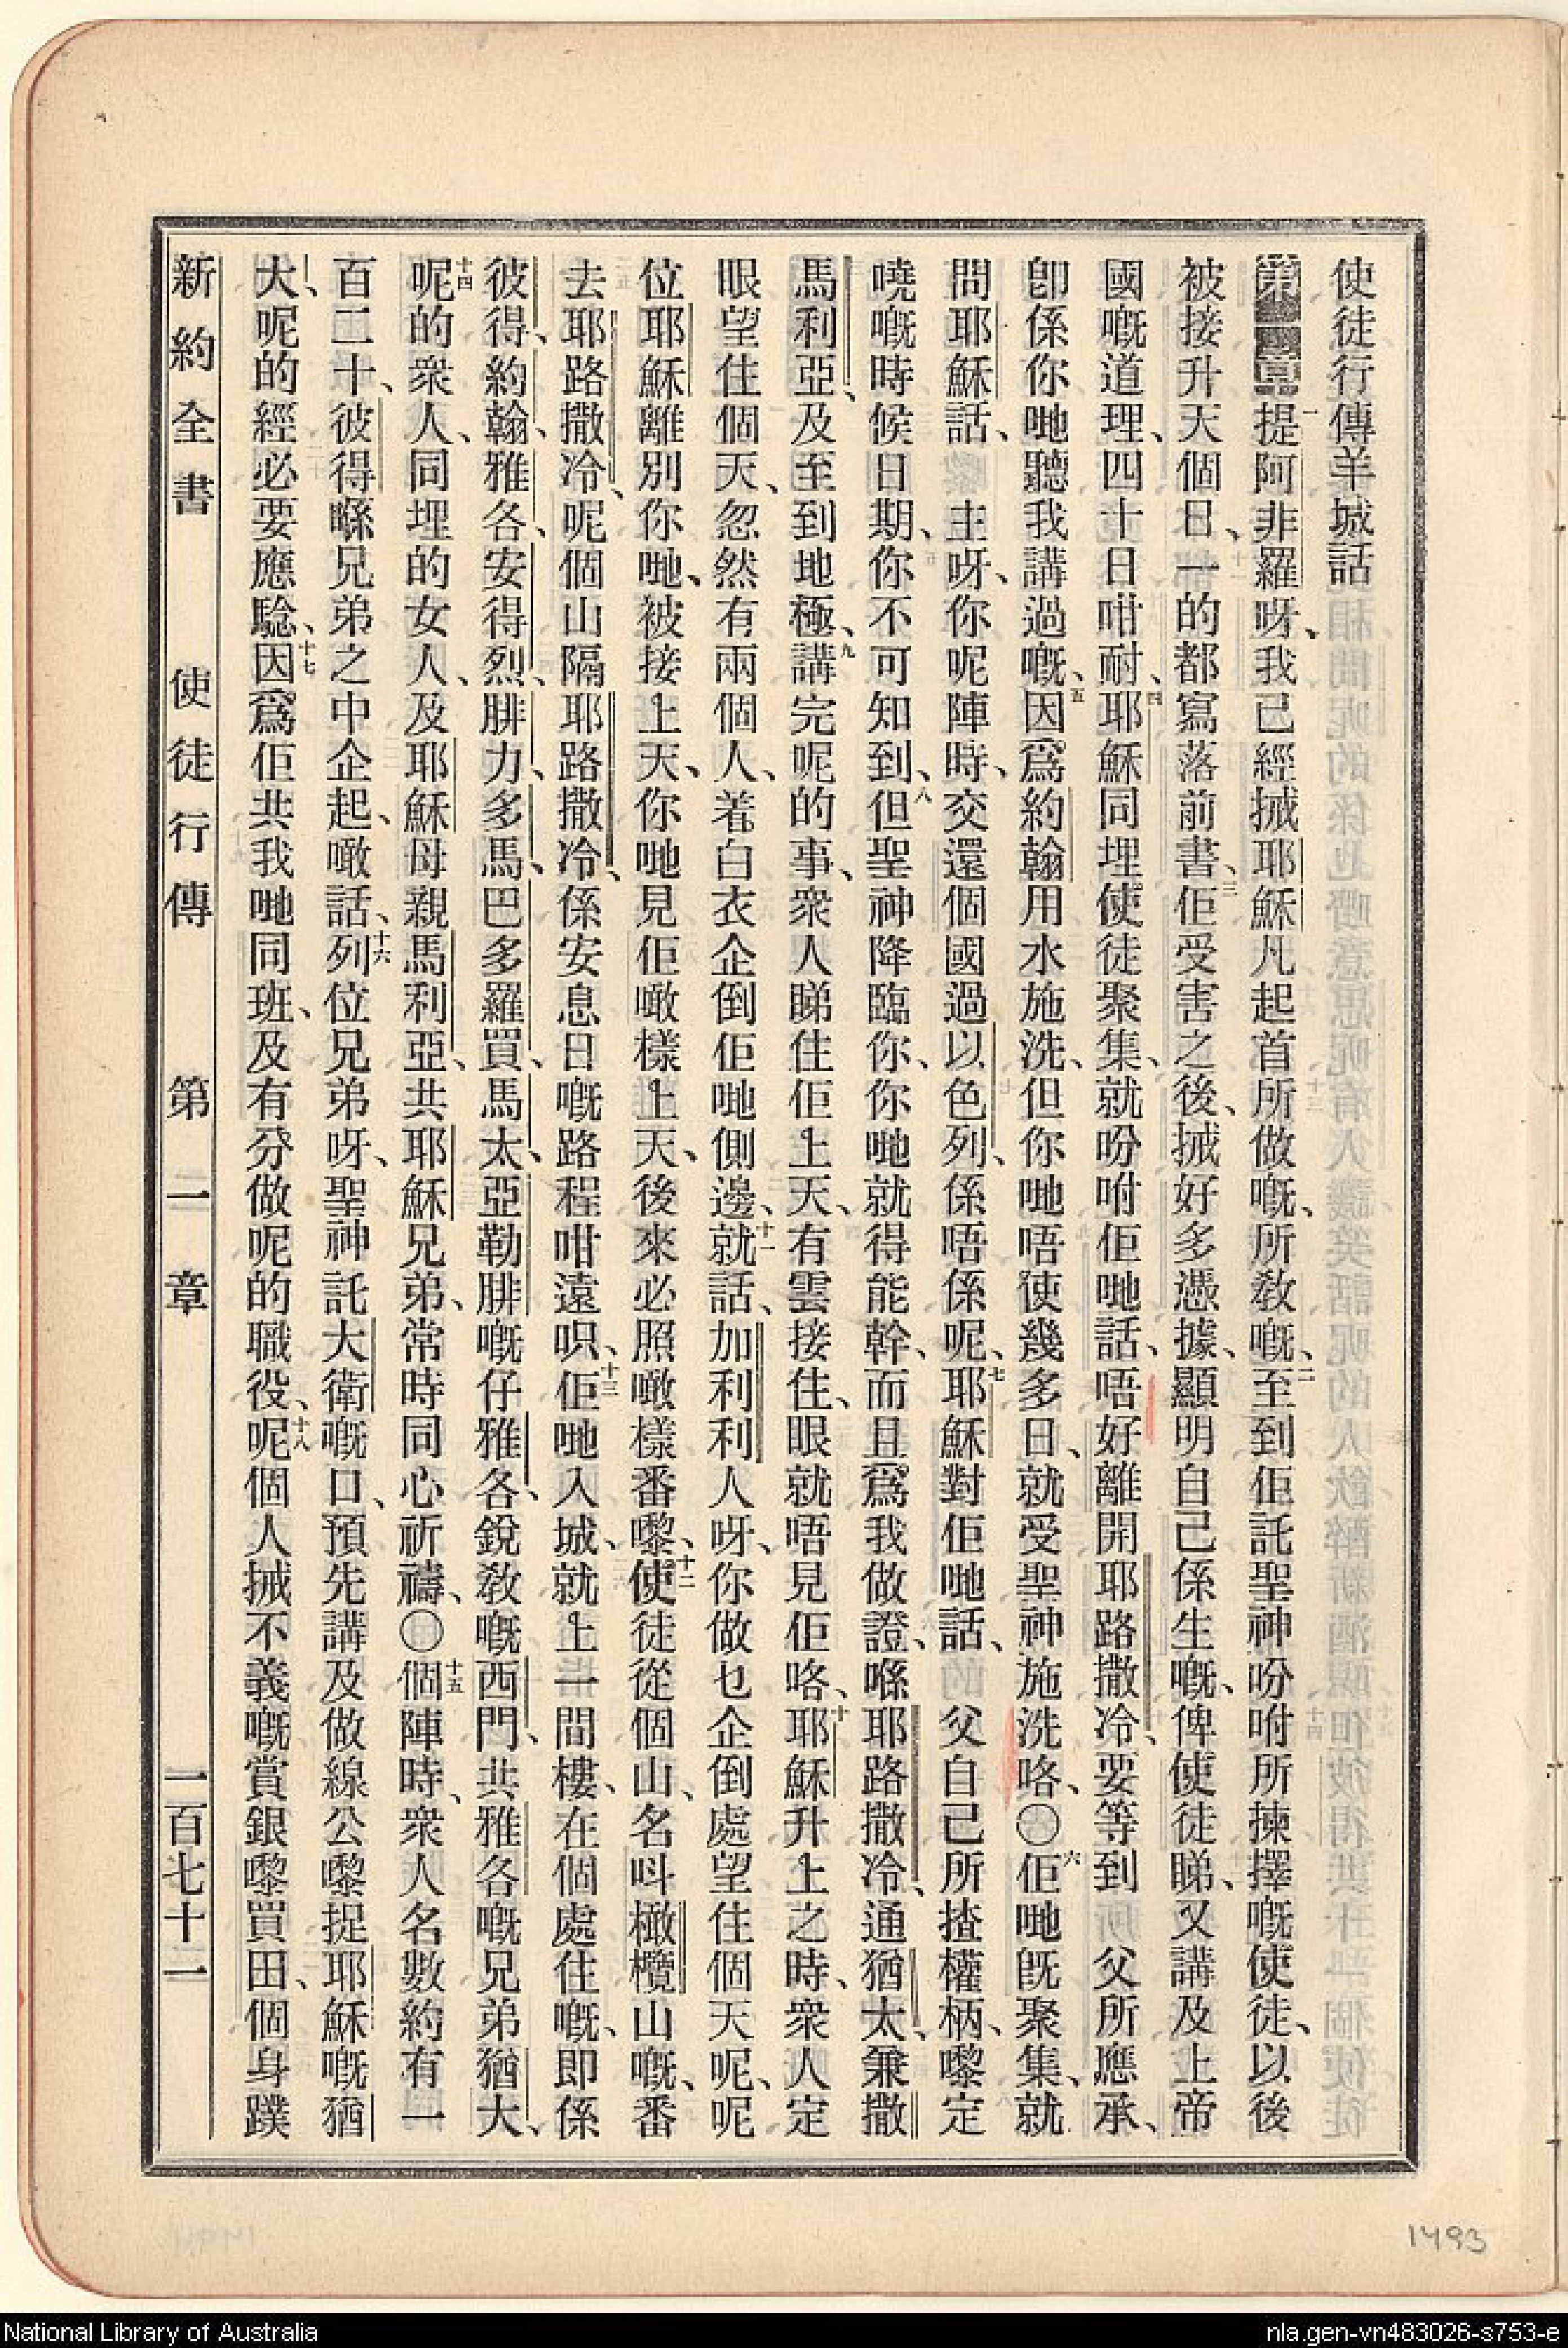 使徒行傳羊城話
第一章 一提阿非羅呀、我已經搣耶穌凡起首所做嘅、所教嘅、二至到佢託聖神吩咐所揀擇嘅使徒、以後
被接升天個日、一的都寫落前書、三佢受害之後、搣好多憑據、顯明自己係生嘅、俾使徒睇、又講及上帝
國嘅道理、四十日咁耐、四耶穌同埋使徒聚集、就吩咐佢哋話、唔好離開耶路撒冷、要等到 父所應承、
即係你哋聽我講過嘅、五因爲約翰用水施洗、但你哋唔使幾多日、就受聖神施洗咯、〇六佢哋旣聚集、就
問耶穌話、 主呀、你呢陣時、交還個國過以色列、係唔係呢、七耶穌對佢哋話、 父自己所揸權柄、嚟定
嘵嘅時候日期、你不可知到、八但聖神降臨你、你哋就得能幹、而且爲我做證、喺耶路撒冷、通猶太、兼撒
馬利亞、及至到地極、九講完呢的事、衆人睇住佢上天、有雲接住、眼就唔見佢咯、十耶穌升上之時、衆人定
眼望住個天、忽然有兩個人、着白衣企倒佢哋側邊、十一就話、加利利人呀、你做乜企倒處望住個天呢、呢
位耶穌離別你哋、被接上天、你哋見佢噉樣上天、後來必照噉樣番嚟、十二使徒從個山、名呌橄欖山嘅、番
去耶路撒冷、呢個山隔耶路撒冷、係安息日嘅路程咁遠呮、十三佢哋入城、就上一間樓、在個處住嘅、即係
彼得、約翰、雅各、安得烈、腓力、多馬、巴多羅買、馬太、亞勒腓嘅仔雅各、銳敎嘅西門、共雅各嘅兄弟猶大、
十四呢的衆人、同埋的女人、及耶穌母親馬利亞、共耶穌兄弟、常時同心祈禱、〇十五個陣時、衆人名數約有一
百二十、彼得喺兄弟之中企起、噉話、十六列位兄弟呀、聖神託大衛嘅口、預先講及做線公嚟捉耶穌嘅猶
大、呢的經必要應騐、十七因爲佢共我哋同班、及有分做呢的職役、十八呢個人搣不義嘅賞銀嚟買田、個身蹼
新約全書 使徒行傳 第一章 一百七十二
1493
National Library of Australia
nla.gen-vn483026-s753-e